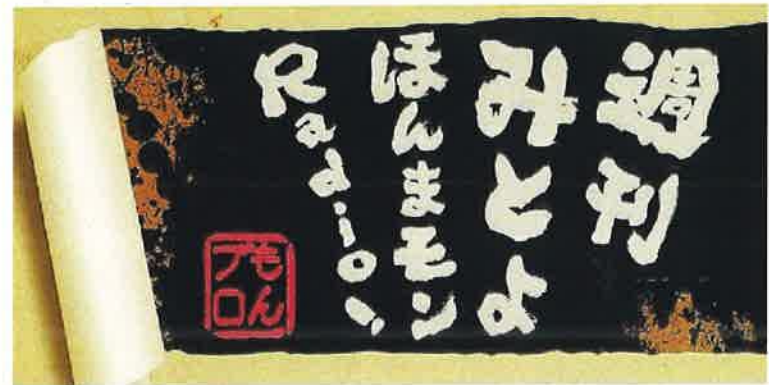 週刊
みとよ
ほんまモン
Radio!
もん
プロ